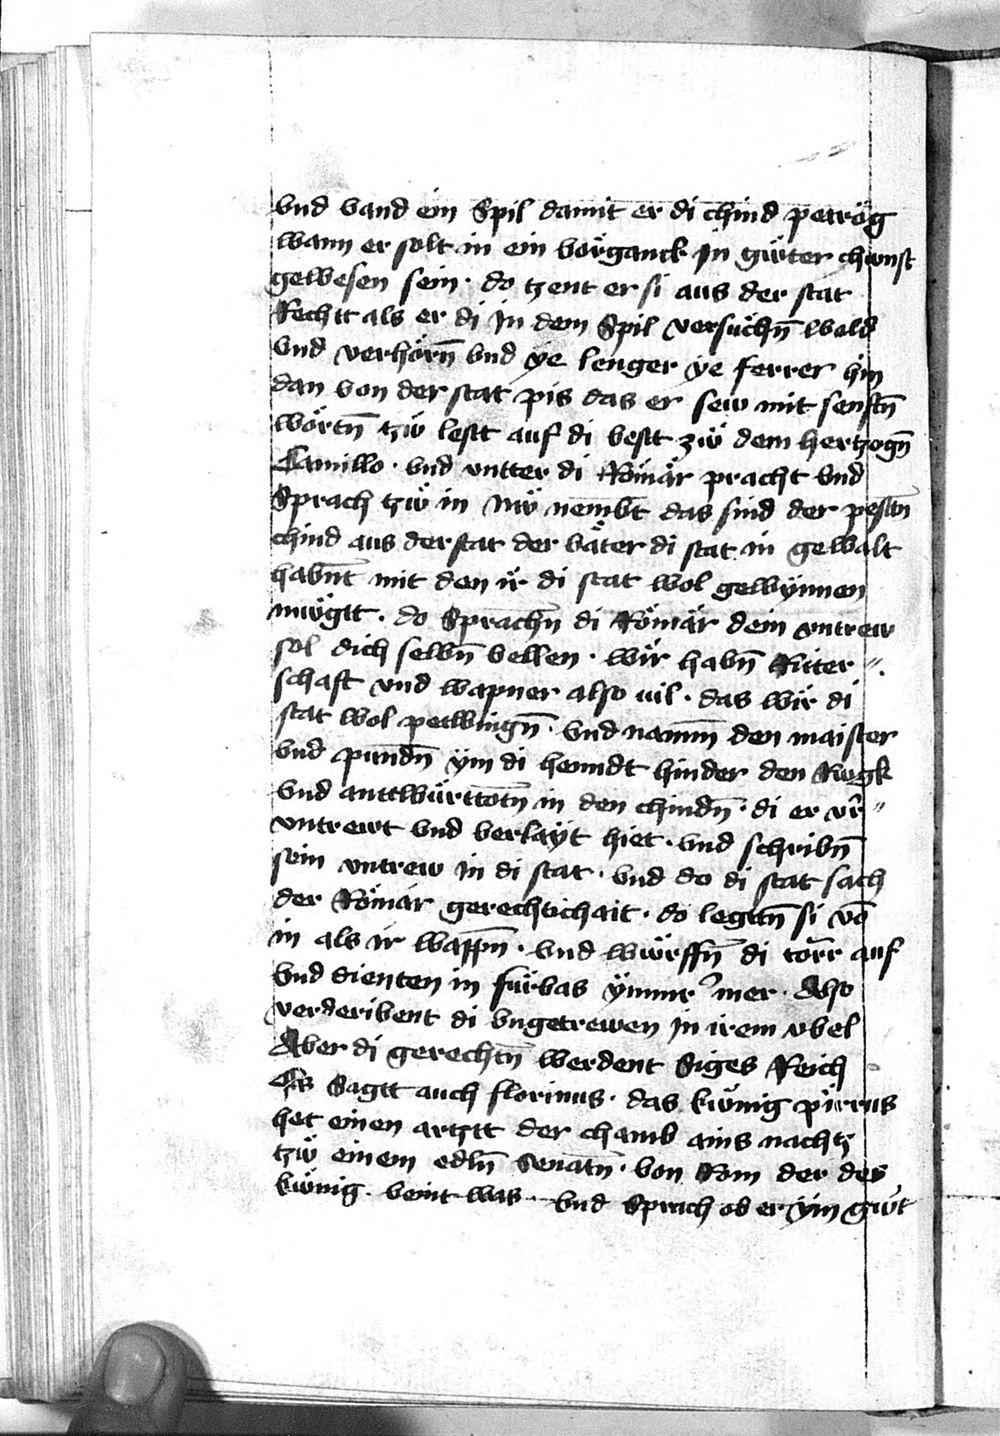 vnd vand ein Spil damit er di chind petrög
wann er solt in ein vorganck jn gůter chunst
gewesen sein · do tzent er si aus der stat
Rechtt als er di jn dem Spil versuchn̄ wold
vnd verhörn̄ vnd ye lenger ye ferrer hin
dan von der stat pis das er sew mit senftn̄
wörtn̄ tzů lestt auf di vestt zů dem hertzogn̄
Camillo · vnd vntter di Römär pracht vnd
Sprach tzů in Nů nembt das sind der pestn̄
chind aus der stat der väter di stat in gewalt
habnt mit den ir di stat wol gewynnen
mügtt · do Sprachn̄ di Römär dein vntrew
sol dich selbn̄ vellen · wir habn̄ Ritter〃
schaft vnd wapner also vil · das wir di
stat wol petwingn̄ · vnd namm̄ den maister
vnd pundn̄ ym di henndt hinder den Rugk
vnd anttwürttottn̄ in den chindn̄ · di er vr̄〃
vntrewt vnd verlayt hiet · vnd schribn̄
sein vntrew jn di stat · vnd do di stat sach
der Römär gerechtichait · do legttn̄ si võ
in als ir wappn̄ · vnd würffn̄ di törr auf
vnd dienten in fürbas ymmer mer · Also
verderibent di vngetrewen jn irem vbel
Aber di gerechtn̄ werdent Siges Reich
Es Sagtt auch florinus · das künig pirrus
het einen artztt der chamb ains nachtz
tzů einem edln̄ Senatn̄ · von Rom der des
künig · veint was · vnd Sprach ob er ym gůt